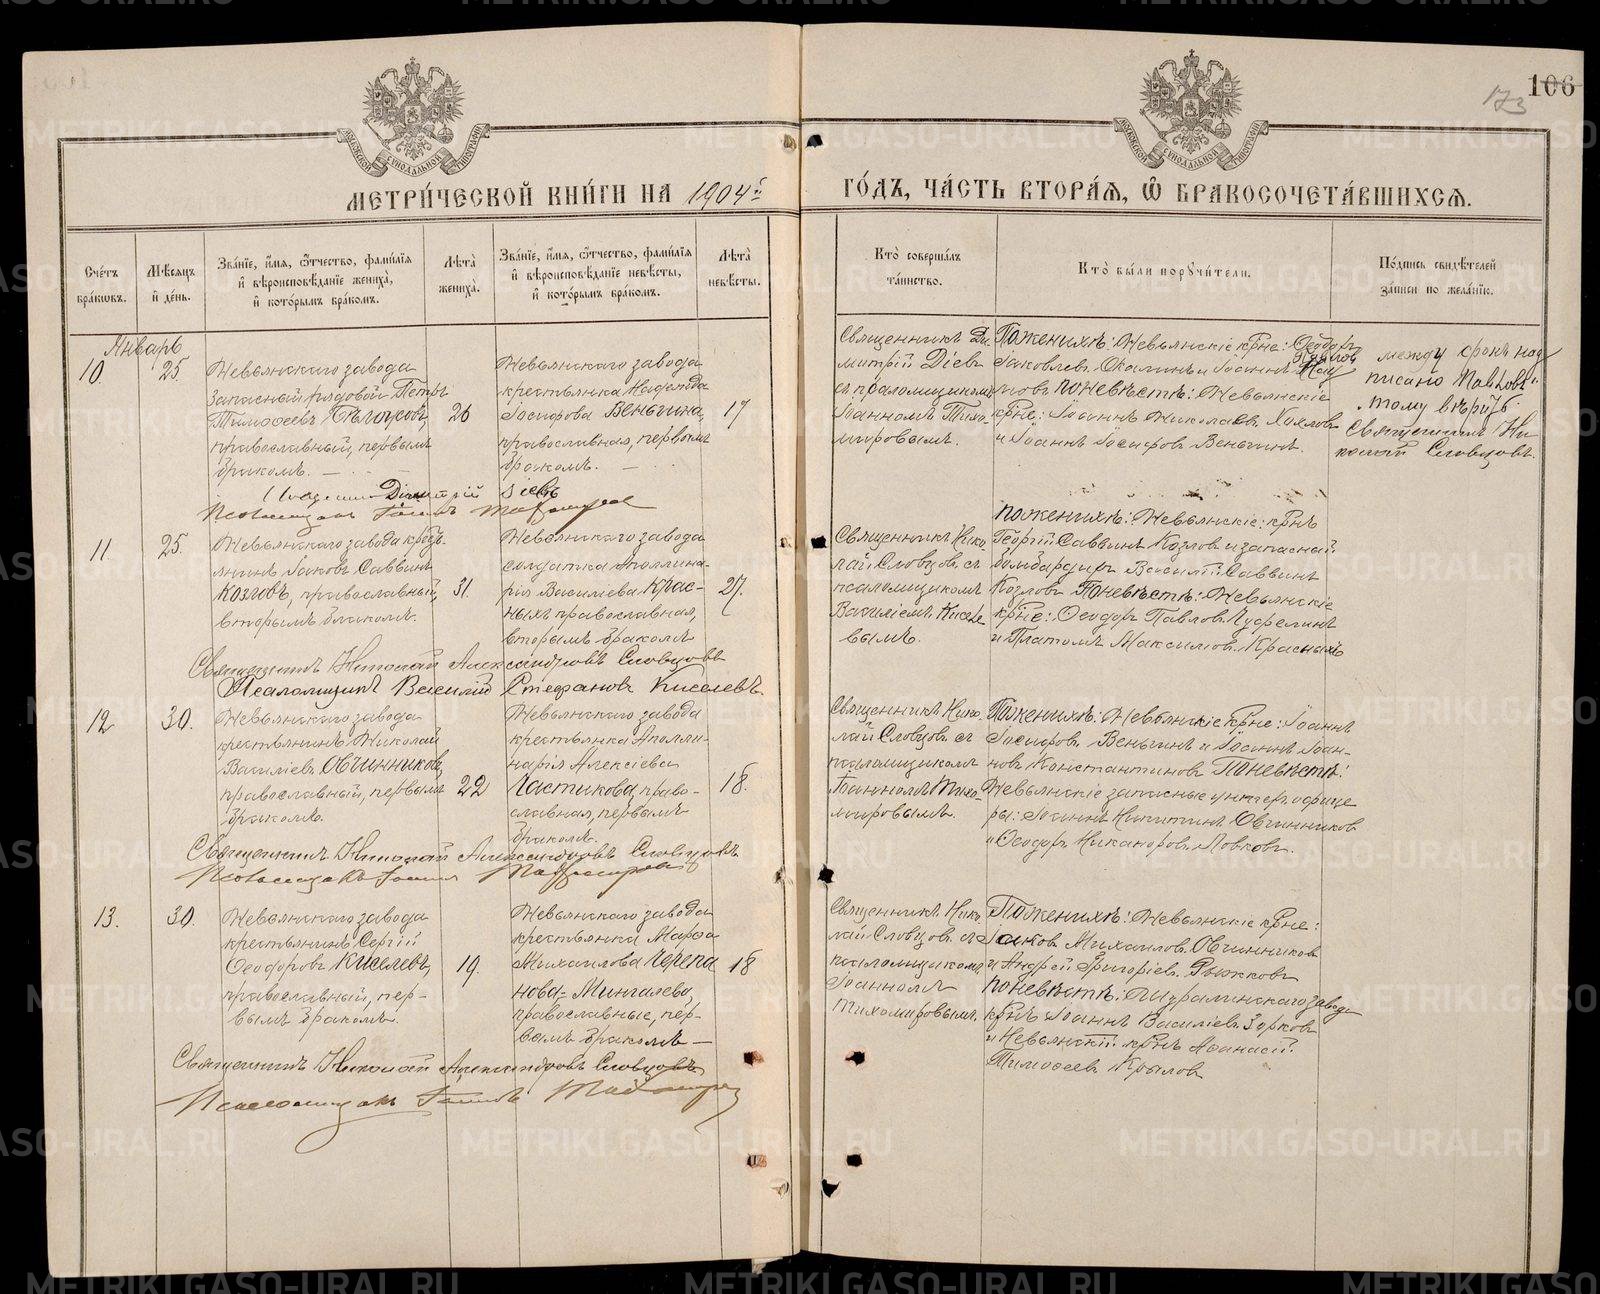 106
173
МЕТРИ́ЧЕСКОЙ КНИ́ГИ НА 1904й
ГО́ДЪ, ЧА́СТЬ ВТОРА́Я, Ѽ БРАКОСОЧЕТА́ВШИХСЯ.
Сче́тъ бра́ковъ.
Мѣ́сяцъ и҆ де́нь.
Зва́нїе, и҆́мя, ѻ҆́тчество, фами́лїя
и҆ вѣроисповѣ́данїе жениха̀,
и҆ кото́рымъ бра́комъ.
Лѣ́та жениха̀.
Зва́нїе, и҆́мя, ѻ҆́тчество, фами́лїя
и҆ вѣроисповѣ́данїе невѣ́сты,
и҆ кото́рымъ бра́комъ.
Лѣ́та невѣ́сты.
Кто̀ соверша́лъ
та́инство.
Кто̀ бы́ли поручи́тели.
По́дпись свидѣ́телей
за́писи по жела́нїю.
Январь
10.
25.
Невьянскаго завода
запасный рядовой Петръ
Тимоѳеевъ Бѣлоусовъ,
православный, первымъ
бракомъ.
26
Невьянскаго завода
крестьянка Надежда
Іосифова Веньгина,
православная, первымъ
бракомъ.
17
Священникъ Ди-
митрій Діевъ
съ псаломщикомъ
Іоанномъ Тихо-
мировымъ.
По женихѣ: Невьянскіе крне: Ѳеодоръ
Іаковлевъ
По невѣстѣ: Невьянскіе
крне: Іоаннъ Николаевъ Хохловъ
и Іоаннъ Іосифовъ Веньгинъ.
между строкъ над
писано Павловъ
тому вѣрить
Священникъ Ни
колай Словцовъ.
Священникъ Димитрій Діевъ
Псаломщикъ Іоаннъ Тихомировъ
11.
25.
Невьянскаго завода кресть-
янинъ Іаковъ Саввинъ
Козловъ, православный,
вторымъ бракомъ.
31.
Невьянскаго завода
солдатка Аполлина-
рія Василіева Крас-
ныхъ православная,
вторымъ бракомъ
27.
Священникъ Нико-
лай Словцовъ съ
псаломщикомъ
Василіемъ Киселе-
вымъ.
По женихѣ: Невьянскіе: крнъ
Георгій Саввинъ Козловъ и запасный
бомбардиръ Василій Саввинъ
Козловъ По невѣстѣ: Невьянскіе
крне: Ѳеодоръ Павловъ
и Платонъ Максимовъ Красныхъ
Священникъ Николай Александровъ Словцовъ
Псаломщикъ Василій Стефановъ Киселевъ.
12
30.
Невьянскаго завода
крестьянинъ Николай
Василіевъ Овчинниковъ,
православный, первымъ
бракомъ.
22
Невьянскаго завода
крестьянка Аполли-
нарія Алексіева
Частикова, право-
славная, первымъ
бракомъ.
18.
Священникъ Нико-
лай Словцовъ съ
псаломщикомъ
Іоанномъ Тихо-
мировымъ.
По женихѣ: Невьянскіе крне: Іоаннъ
Іосифовъ Веньгинъ и Іоаннъ Іоан-
новъ Константиновъ По невѣстѣ:
Невьянскіе запасные унтеръ офице
ры: Іоаннъ Никитинъ Овчинниковъ
и Ѳеодоръ Никаноровъ Ловковъ.
Священникъ Николай Александровъ Словцовъ
Псаломщикъ Іоаннъ Тихомировъ
13.
30.
Невьянскаго завода
крестьянинъ Сергій
Ѳеодоровъ Киселевъ,
православный, пер-
вымъ бракомъ.
19.
Невьянскаго завода
крестьянка Марѳа
Михаилова Черепа
нова-Мингалева,
православные, пер-
вымъ бракомъ
18
Священникъ Нико
лай Словцовъ съ
псаломщикомъ
Іоанномъ
Тихомировымъ.
По женихѣ: Невьянскіе крне:
Іаковъ Михаиловъ Овчинниковъ
и Андрей Григоріевъ Рыжковъ
по невѣстѣ: Шуралинскаго завода
крнъ Іоаннъ Василіевъ Зорковъ
и Невьянскій крнъ Аѳанасій
Тимоѳеевъ Крыловъ
Священникъ Николай Александровъ Словцовъ
Псаломщикъ Іоаннъ Тихомировъ
METRIKI.GASO-URAL.RU